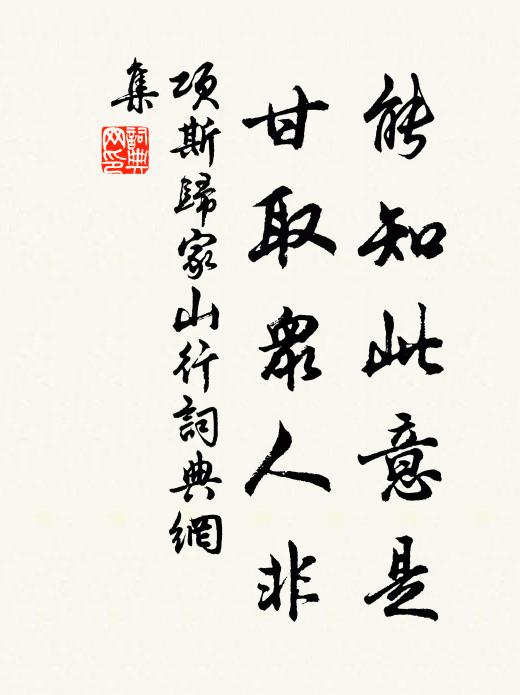 能知此意是
甘取衆人非
項斯歸家山行詞典網
集
詞典
网印